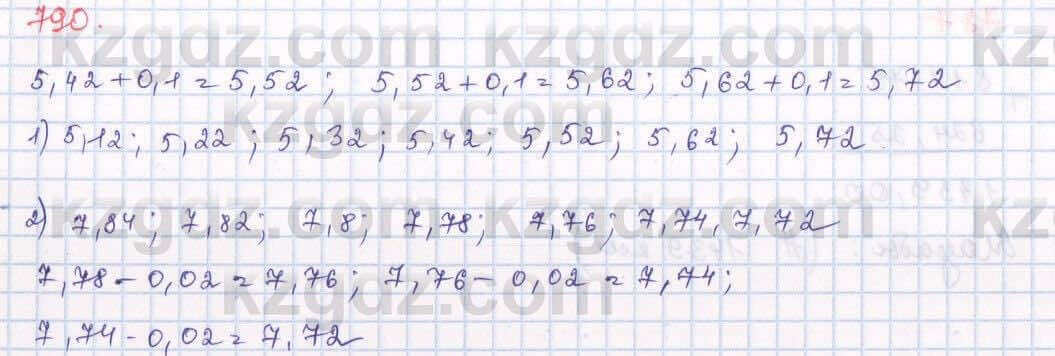 790.
kzgdz.com kzgdz.com
5,42+0,1=5,52; 5,52+0,1=5,62; 5,62+0,1=5,72
1) 5,12; 5,22; 5,32; 5,42; 5,52; 5,62; 5,72
2) 7,84; 7,82; 7,8; 7,78; 7,76; 7,74, 7,72
7,78-0,02=7,76; 7,76-0,02=7,74;
7,74-0,02=7,72